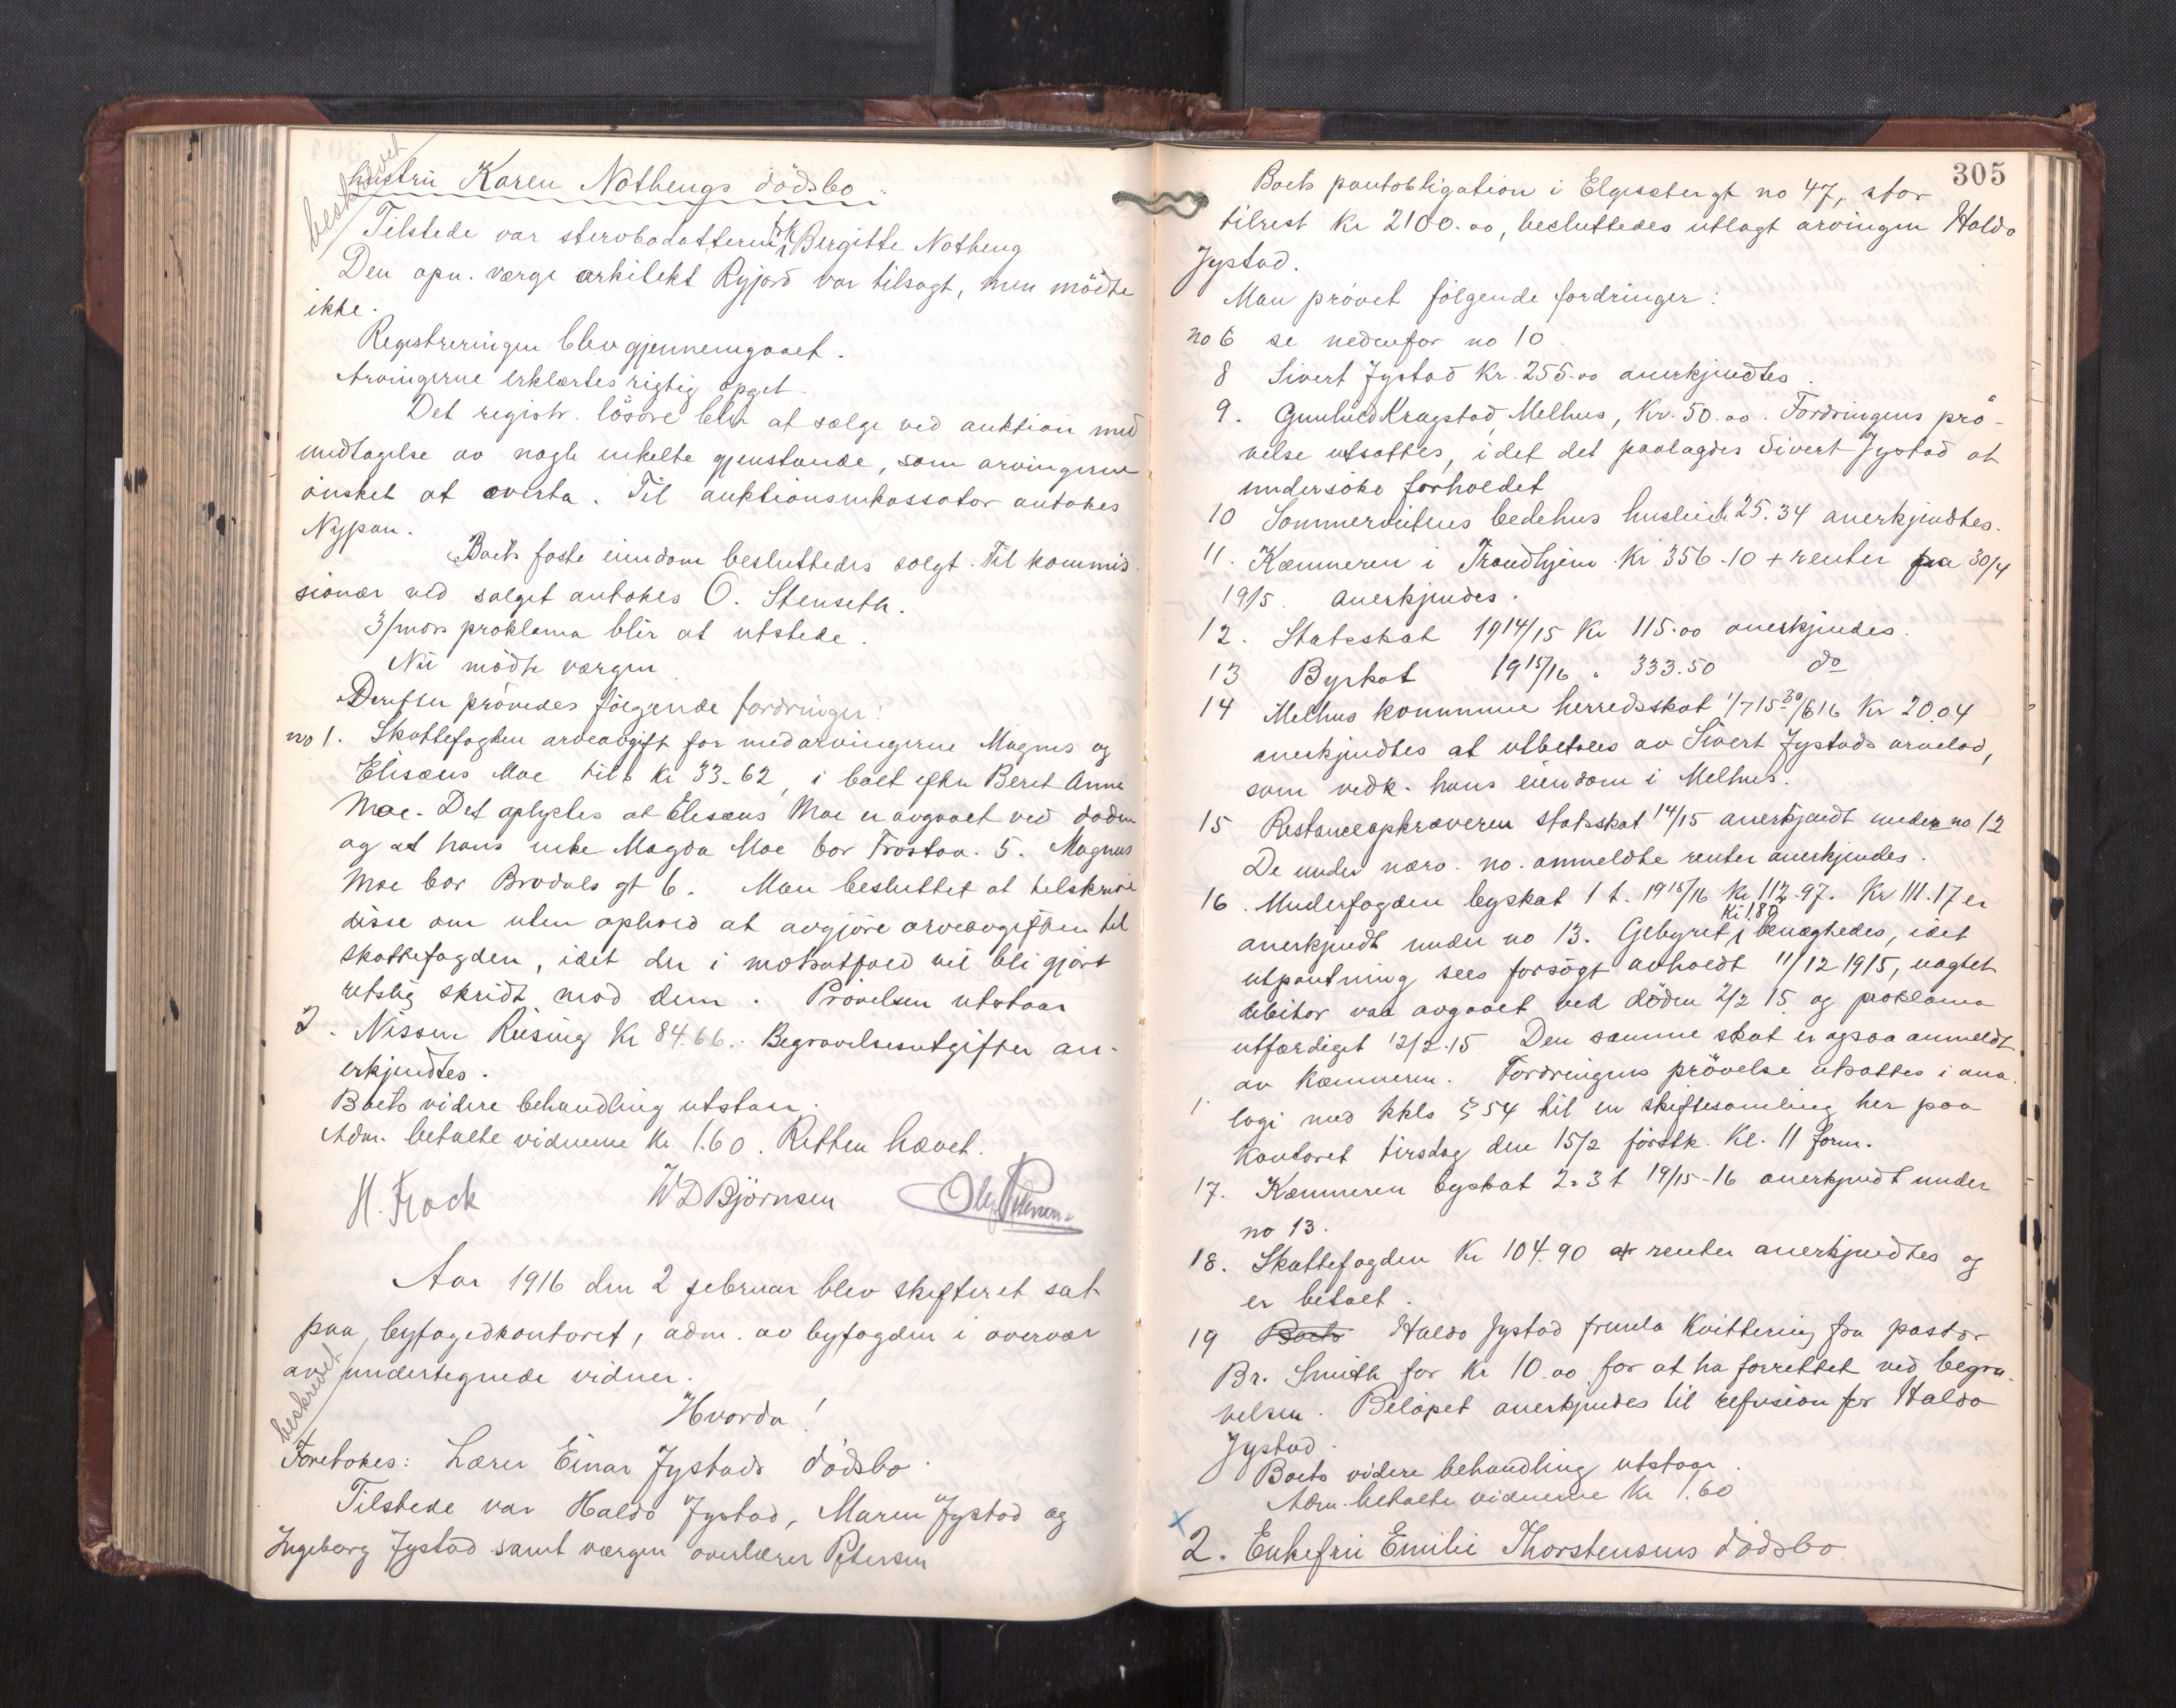 beskrevet
hustru Karen Nothengs dödsbo
Tilstede var stervbodatteren Birgitte Notheng
Den opn. værge arkitekt Ryjord var tilsagt, men mödte
ikke.
Registreringen blev gjennemgaaet.
Arvingerne erklærtes rigtig opget.
Det registr. lösöre blir at sælge ved auktion med
undtagelse av nogle enkelte gjenstande, som arvingerne
önsket at overta. Til auktionsinkassator antokes
Nypan.
Boets faste eiendom besluttedes solgt. Til kommis-
sionær ved salget antokes O. Stenseth.
3/mdrs proklama blir at utstede.
Nu mödte værgen
Derefter prövedes fölgende fordringer:
no 1. Skattefogden arveavgift for medarvingerne Magnus og
Elisæus Moe tils kr 33-62, i boet efter Beret Anna
Moe. Det oplystes at Elisæus Moe er avgaaet ved döden
og at hans enke Magda Moe bor Frostaa. 5. Magnus
Moe bor Brodals gt 6. Man besluttet at tilskrive
disse om uten ophold at avgjöre arveavgiften til
skattefogden, idet der i motsatfald vil bli gjört
retslig skridt mod dem. Prövelsen utstaar
2. Nissen Riising Kr 84.66. Begravelsesutgifter an-
erkjendtes.
Boets videre behandling utstaar.
Adm. betalte vidnerne kr. 1.60. Retten hævet.
H. Frock W D Björnsen
Aar 1916 den 2 februar blev skifteret sat
paa byfogedkontoret, adm. av byfogden i overvær
av undertegnede vidner.
beskrevet
Hvorda!
Foretokes: Lærer Einar Jystads dödsbo.
Tilstede var Haldo Jystad, Maren Jystad og
Ingeborg Jystad samt værgen overlærer Petersen
305
Boets pantobligation i Elgesetergt no 47, stor
tilrest Kr 2100.00, besluttedes utlagt arvingen Haldo
Jystad.
Man prövet fölgende fordringer:
no 6 se nedenfor no 10.
8 Sivert Jystad Kr. 255.00 anerkjendtes.
9. Gunhild Kragstad, Melhus, Kr. 50.00. Fordringens prö-
velse utsattes, idet det paalagdes Sivert Jystad at
undersöke forholdet
10 Sommerveitens bedehus husleie kr 25.34 anerkjendtes.
11. Kæmneren i Trondhjem Kr 356-10 + renter fra 30/4
1915. anerkjendes.
12. Statsskat 1914/15 Kr 115.00 anerkjendes.
13 Byskat 1915/16 " 333.50 do
14 Melhus kommune herredsskat 1/7 15-30/6 16 Kr 20.04
anerkjendtes at utbetales av Sivert Jystads arvelod,
som vedk. hans eiendom i Melhus.
15 Restanceopkræveren statsskat 14/15 anerkjendt under no 12
De under nærv. no. anmeldte renter anerkjendes.
16. Underfogden byskat 1 t. 1915/16 Kr 112.97. Kr 111.17 er
anerkjendt under no 13. Gebyret kr 1.80 benegtedes, idet
utpantning sees forsögt avholdt 11/12 1915, uagtet
debitor var avgaaet ved döden 2/2 15 og proklama
utfærdiget 12/2.15 Den samme skat er ogsaa anmeldt
av Kæmneren. Fordringens prövelse utsattes i ana-
logi med kkls § 54 til en skiftesamling her paa
Kontoret tirsdag den 15/2 förstk. Kl. 11 form.
17. Kæmneren byskat 2. 3 t 19/15-16 anerkjendt under
no 13.
18. Skattefogden Kr 104.90 + renter anerkjendtes og
er betalt.
19 Boets Haldo Jystad fremla Kvittering fra pastor
Br. Smith for Kr 10.00 for at ha forrettet ved begra-
velsen. Belöpet anerkjendes til refusion for Haldo
Jystad.
Boets videre behandling utstaar.
Adm. betalte vidnerne Kr 1.60
2. Enkefru Emilie Thorstensens dödsbo